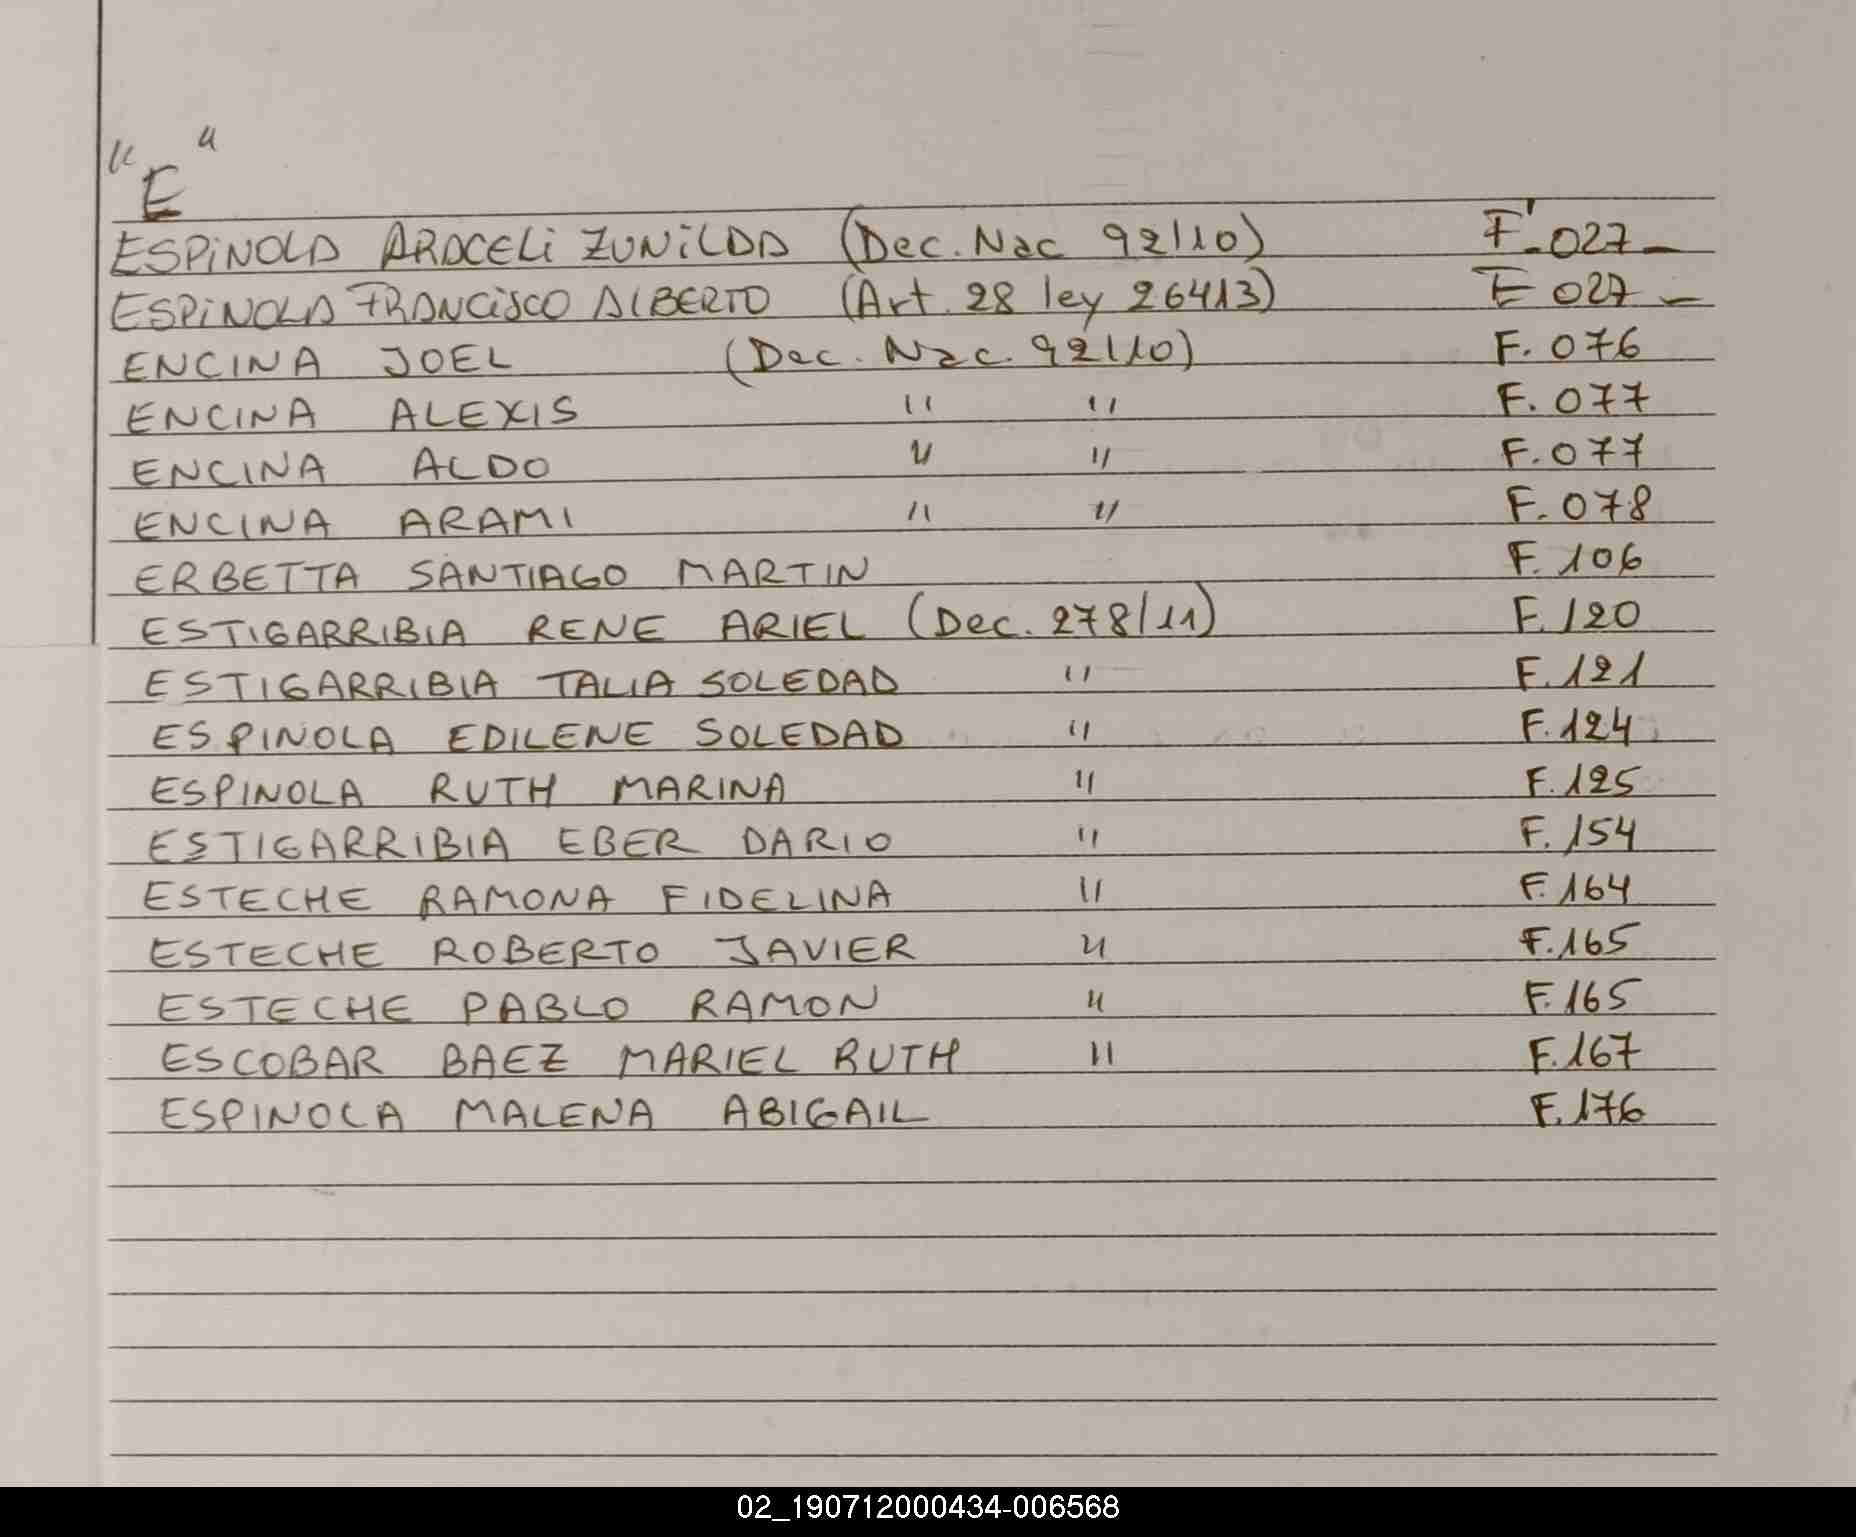 "E"
ESPINOLA ARACELI ZUNILDA (Dec. Nac 92/10) F.027-
ESPINOLA FRANCISCO ALBERTO (Art. 28 ley 26413) F 027-
ENCINA JOEL (Dec. Nac. 92/10) F. 076
ENCINA ALEXIS " " F. 077
ENCINA ALDO " " F. 077
ENCINA ARAMI " " F. 078
ERBETTA SANTIAGO MARTIN F. 106
ESTIGARRIBIA RENE ARIEL (Dec. 278/11) F. 120
ESTIGARRIBIA TALIA SOLEDAD " F. 121
ESPINOLA EDILENE SOLEDAD " F. 124
ESPINOLA RUTH MARINA " F. 125
ESTIGARRIBIA EBER DARIO " F. 154
ESTECHE RAMONA FIDELINA " F. 164
ESTECHE ROBERTO JAVIER " F. 165
ESTECHE PABLO RAMON " F. 165
ESCOBAR BAEZ MARIEL RUTH " F. 167
ESPINOLA MALENA ABIGAIL F. 176
02_190712000434-006568